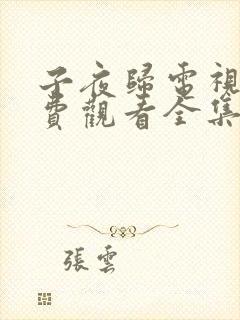 子夜歸電視
費觀看全集
張雲